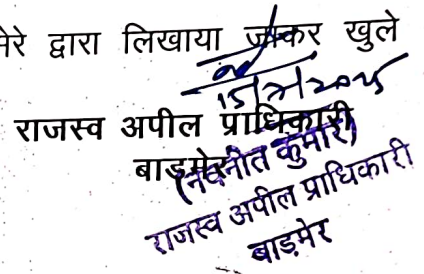 मेरे द्वारा लिखाया जाकर खुले
15/7/2025
राजस्व अपील प्राधिकारी
बाड़मेर
(नवनीत कुमार)
राजस्व अपील प्राधिकारी
बाड़मेर